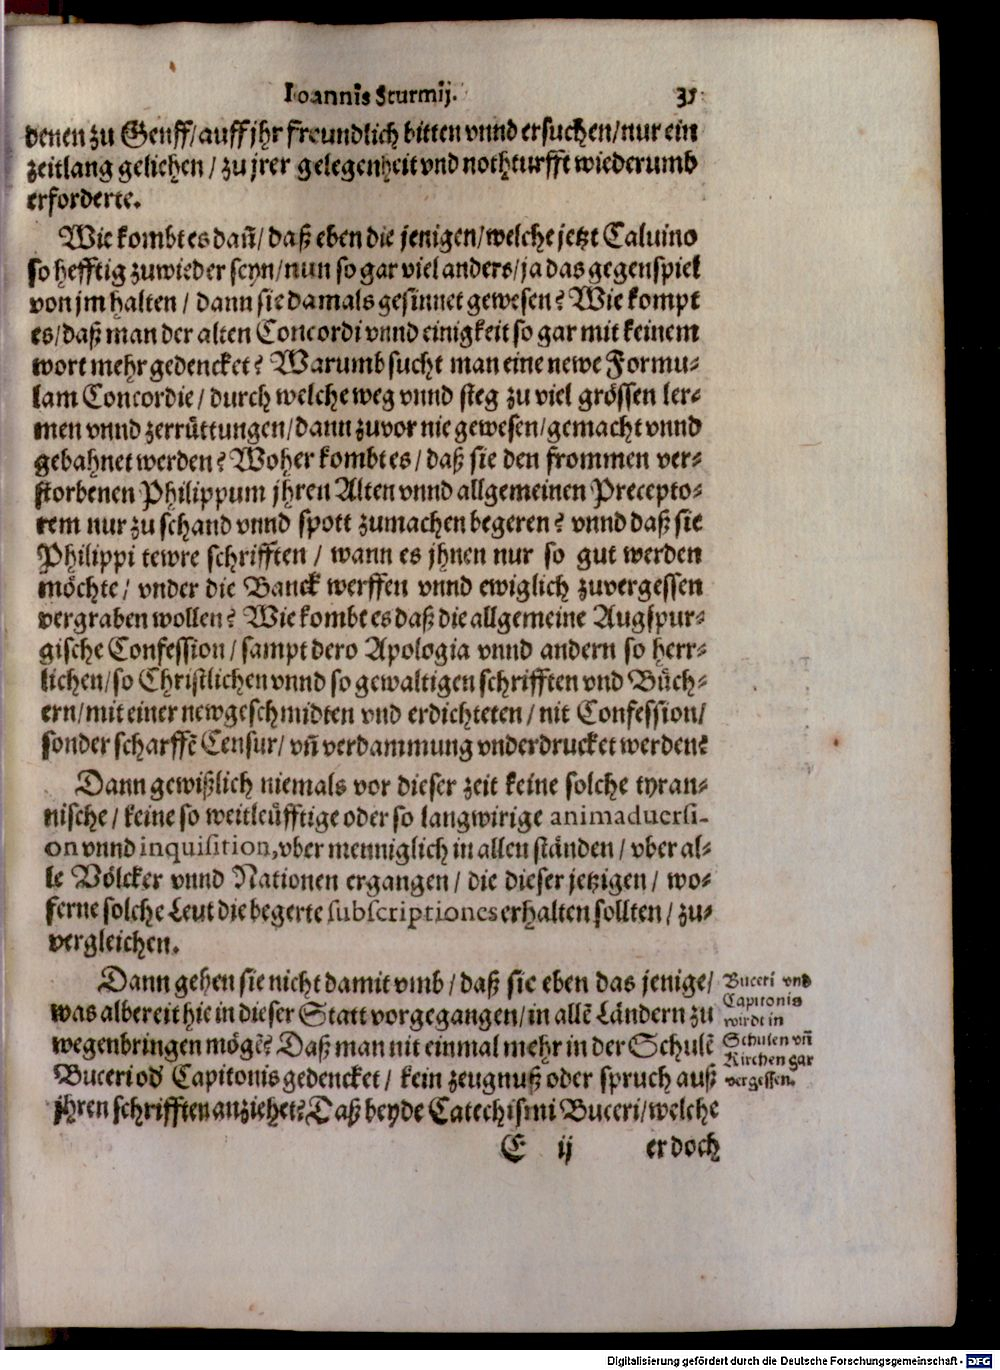 Ioannis Sturmij. 35
denen zu Genff/auff jhr freundlich bitten vnnd ersuchen/nur ein
zeitlang gelichen / zu jrer gelegenheit vnd nothturfft wiederumb
erforderte.
Wie kombt es dañ/ daß eben die jenigen/welche jetzt Caluino
so hefftig zuwieder seyn/nun so gar viel anders/ja das gegenspiel
von jm halten / dann sie damals gesinnet gewesen? Wie kompt
es/daß man der alten Concordi vnnd einigkeit so gar mit keinem
wort mehr gedencket? Warumb sucht man eine newe Formu-
lam Concordie / durch welche weg vnnd steg zu viel grössen ler-
men vnnd zerrüttungen/dann zuvor nie gewesen/gemacht vnnd
gebahnet werden? Woher kombt es/ daß sie den frommen ver-
storbenen Philippum jhren Alten vnnd allgemeinen Precepto-
rem nur zu schand vnnd spott zumachen begeren? vnnd daß sie
Philippi tewre schrifften / wann es jhnen nur so gut werden
möchte/ vnder die Banck werffen vnnd ewiglich zuvergessen
vergraben wollen? Wie kombt es daß die allgemeine Augspur-
gische Confession / sampt dero Apologia vnnd andern so herr-
lichen/so Christlichen vnnd so gewaltigen schrifften vnd Büch-
ern/mit einer newgeschmidten vnd erdichteten / nit Confession/
sonder scharffẽ Censur/ vñ verdammung vnderdrucket werden?
Dann gewißlich niemals vor dieser zeit keine solche tyran-
nische / keine so weitleüfftige oder so langwirige animaduersi-
on vnnd inquisition, vber menniglich in allen ständen / vber al-
le Völcker vnnd Nationen ergangen / die dieser jetzigen / wo-
ferne solche Leut die begerte subscriptiones erhalten sollten / zu-
vergleichen.
Dann gehen sie nicht damit vmb / daß sie eben das jenige/
was albereit hie in dieser Statt vorgegangen/in allẽ Ländern zu
wegenbringen mögẽ? Daß man nit einmal mehr in der Schulẽ
Buceri oď Capitonis gedencket / kein zeugnuß oder spruch auß
jhren schrifften anziehet? Daß beyde Catechismi Buceri/welche
Buceri vnd
Capitonis
wirdt in
Schulen vñ
Kirchen gar
vergessen.
E ij er doch
Digitalisierung gefördert durch die Deutsche Forschungsgemeinschaft - DFG